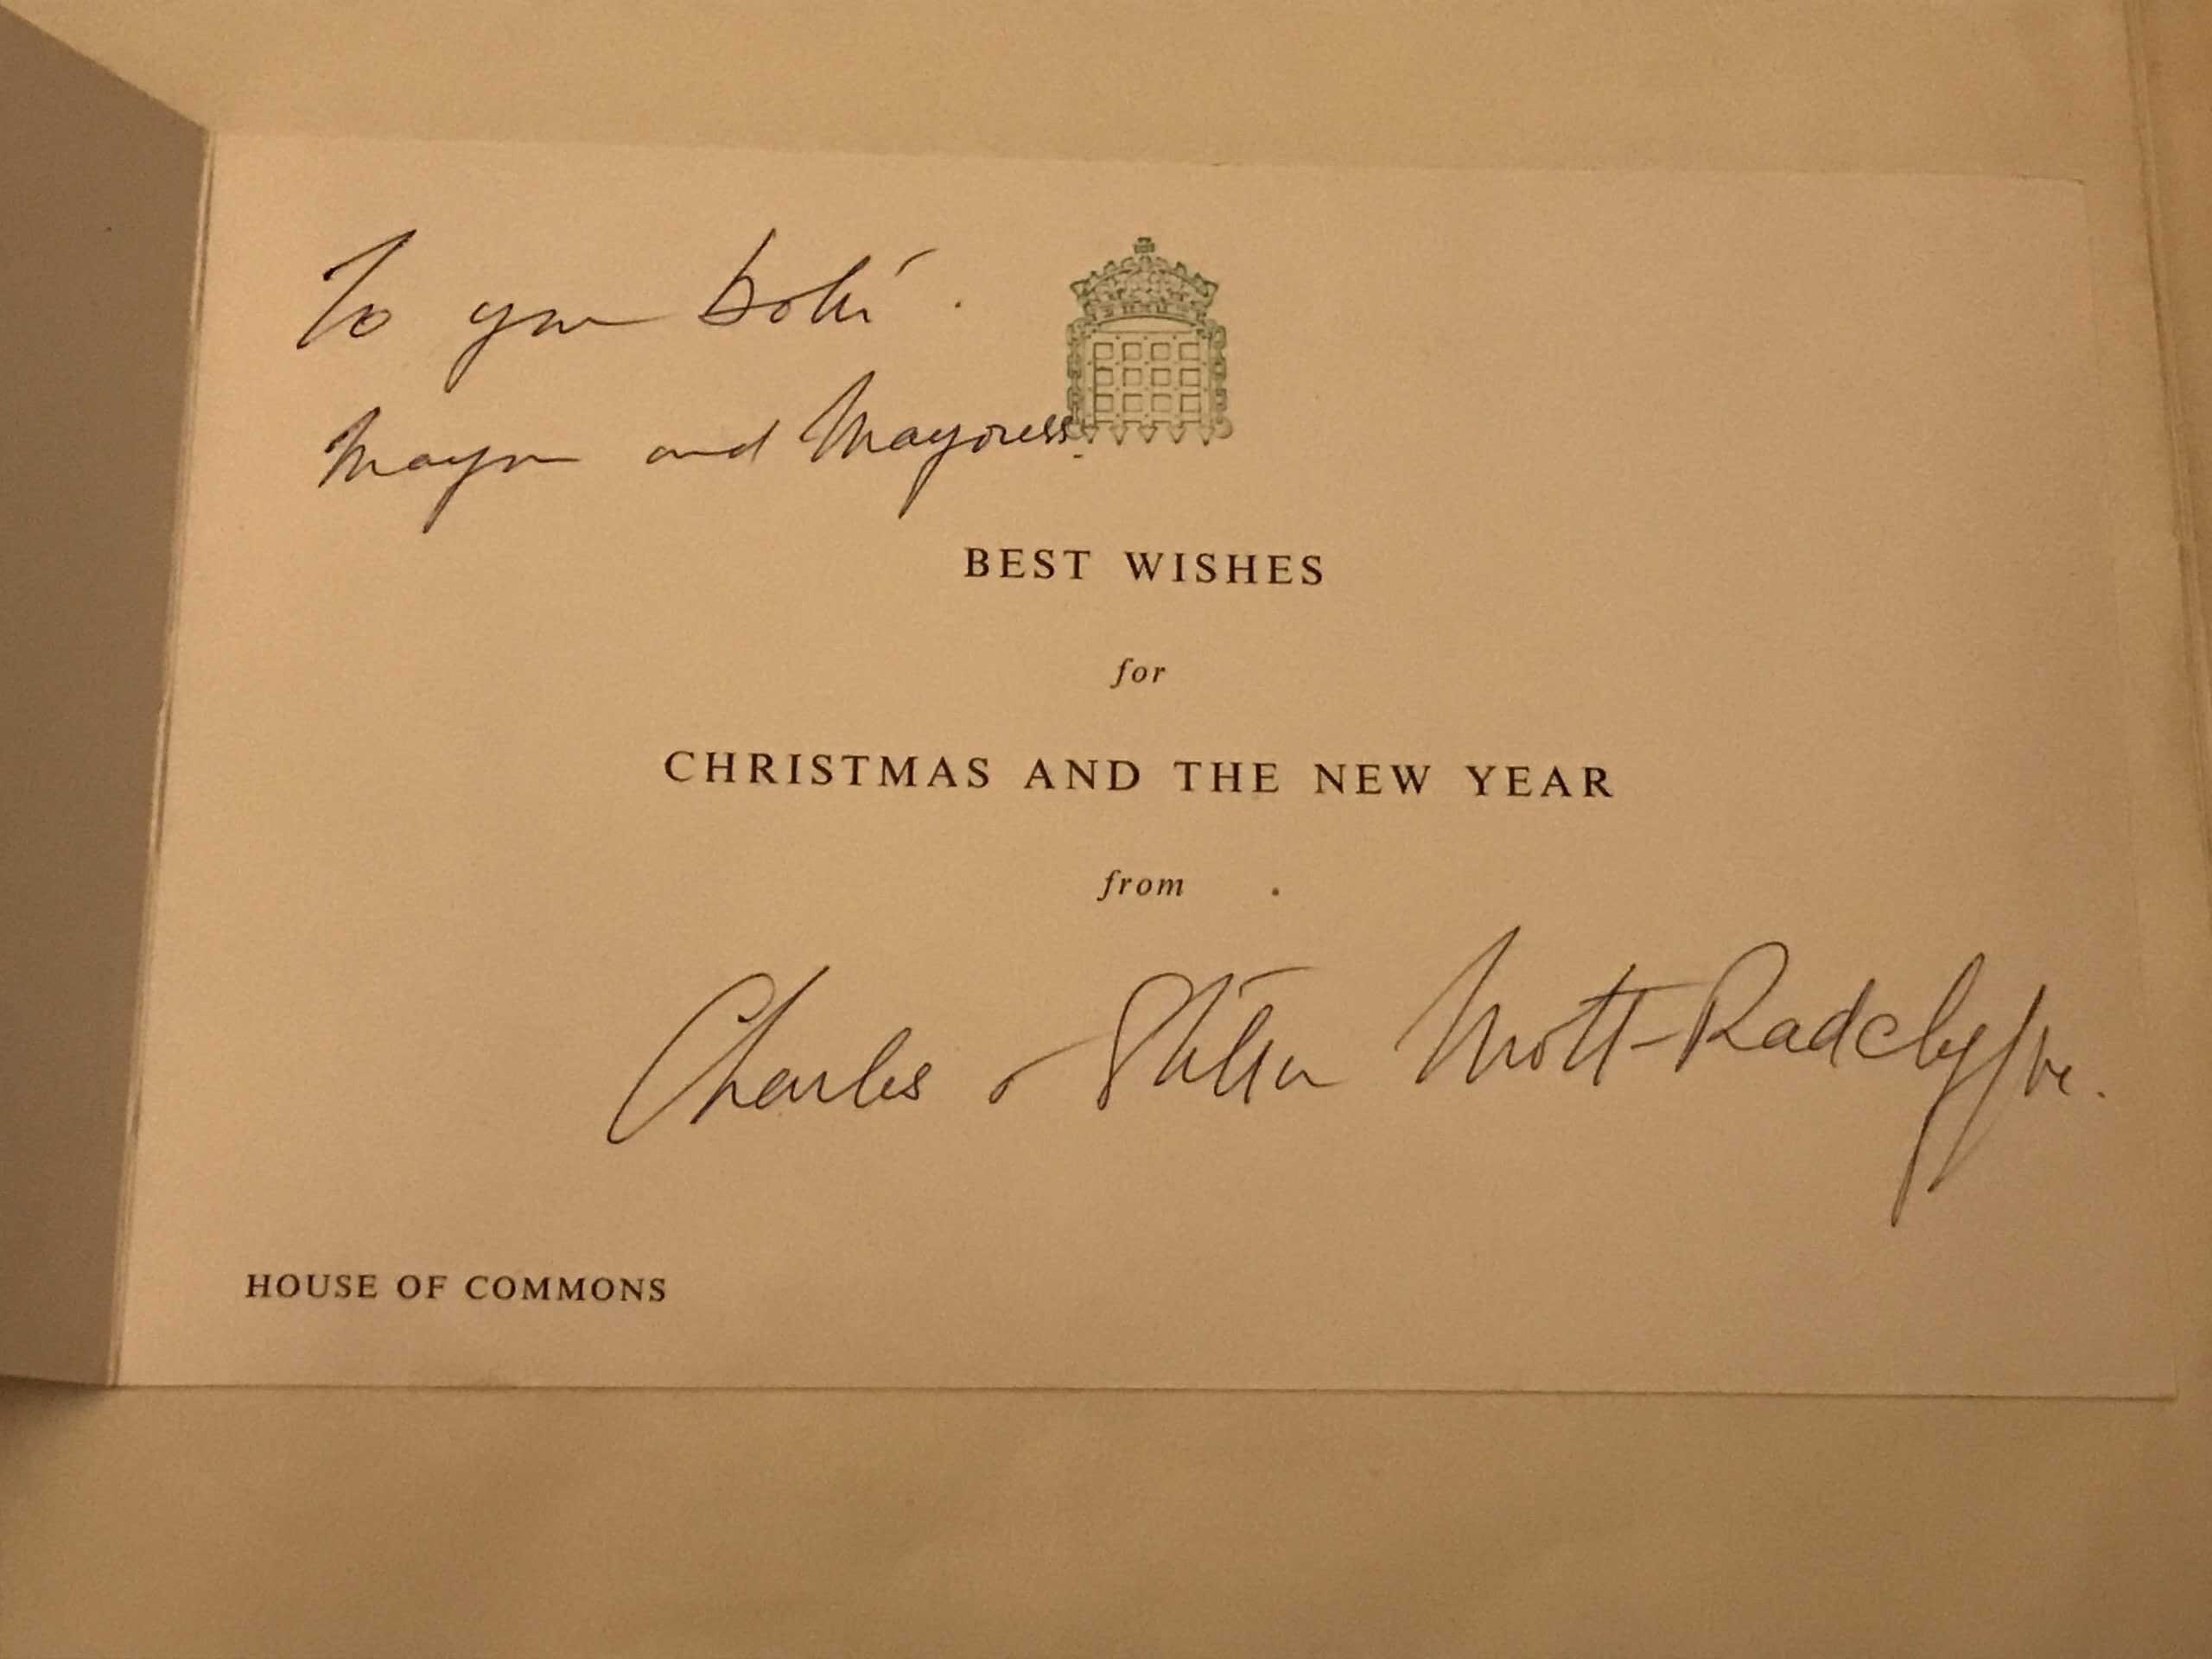 To you both.
Mayor and Mayoress.
BEST WISHES
for
CHRISTMAS AND THE NEW YEAR
from
Charles & Stella Mott-Radclyffe.
HOUSE OF COMMONS